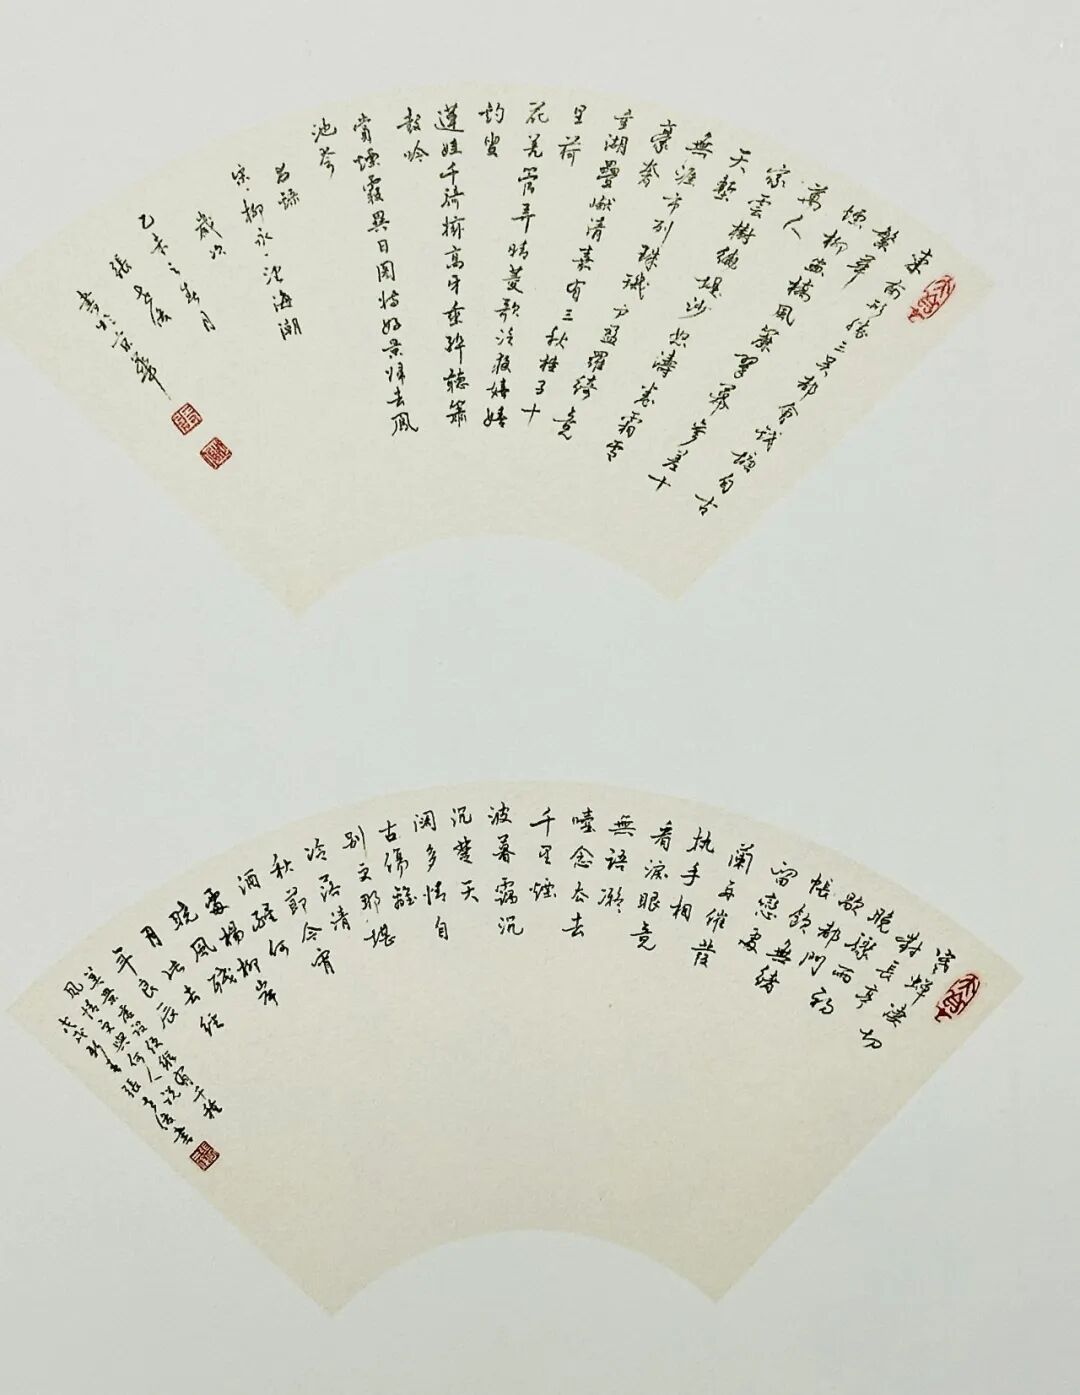 東南形勝三吳都會錢塘自古
繁華
煙柳畫橋風簾翠幕參差十
萬人
家雲樹繞堤沙怒濤卷霜雪
天塹
無涯市列珠璣戶盈羅綺竟
豪奢
重湖疊巘清嘉有三秋桂子十
里荷
花羌管弄晴菱歌泛夜嬉嬉
釣叟
蓮娃千騎擁高牙乘醉聽簫
鼓吟
賞煙霞異日圖將好景歸去鳳
池夸
右錄
宋·柳永·望海潮
歲次
乙未之 月
張
書於京華
寒蟬淒切
對長亭
晚驟雨初
歇都門
帳飲無緒
留戀處
蘭舟催發
執手相
看淚眼竟
無語凝
噎念去去
千里煙
波暮靄沉
沉楚天
闊多情自
古傷離
別更那堪
冷落清
秋節今宵
酒醒何
處楊柳岸
曉風殘
月此去經
年良辰
美景虛設便縱有千種
風情更與何人說
戊戌新春張 書